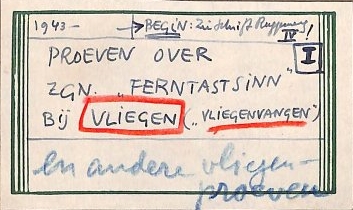 1943- → BEGIN: Zie Schrift Ruppenweg IV!
PROEVEN OVER I
ZGN. „FERNTASTSINN"
BIJ VLIEGEN („VLIEGENVANGEN")
En andere vliegen-
proeven